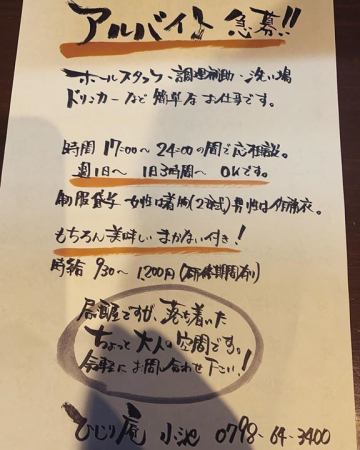 アルバイト 急募!!
ホールスタッフ・調理補助・洗い場
ドリンカーなど簡単なお仕事です。
時間 17:00〜24:00の間で応相談。
週1日〜 1日3時間〜 OKです。
制服貸与 女性は着物(2部式)男性は作務衣。
もちろん美味しいまかない付き!
時給 930〜1200円(研修期間有り)
居酒屋ですが、落ち着いた
ちょっと大人の空間です。
気軽にお問い合わせ下さい!
ひじり庵 小池 0798-64-3400